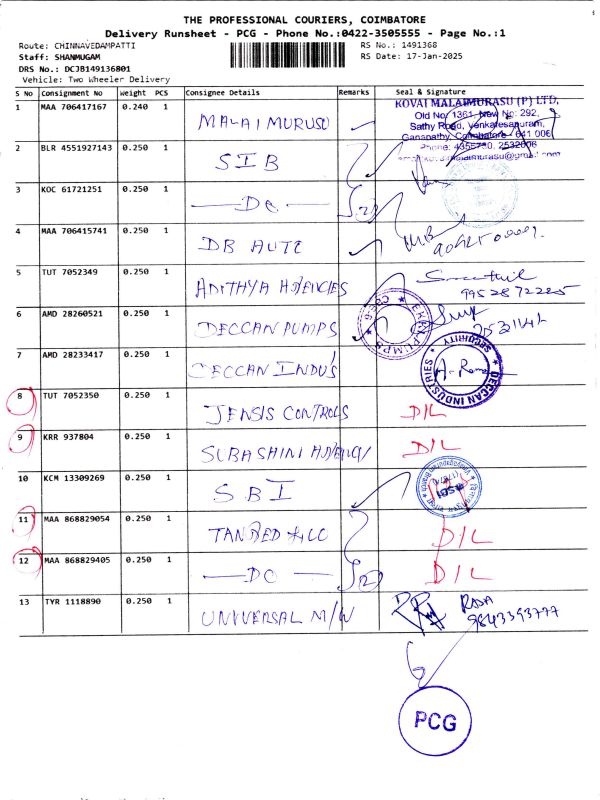 THE PROFESSIONAL COURIERS, COIMBATORE
Delivery Runsheet - PCG - Phone No.:0422-3505555 - Page No.:1
Route: CHINNAVEDAMPATTI RS No.: 1491368
Staff: SHANMUGAM RS Date: 17-Jan-2025
DRS No.: DCJB149136801
Vehicle: Two Wheeler Delivery
S No Consignment No Weight PCS Consignee Details Remarks Seal & Signature
1 MAA 706417167 0.240 1 MALAIMURUSU
KOVAI MALAIMURASU (P) LTD,
Old No: 1361, New No: 292,
Sathy Road, Venkatesapuram,
Ganapathy, Coimbatore - 641 006
2 BLR 4551927143 0.250 1 SIB
3 KOC 61721251 0.250 1 DO
4 MAA 706415741 0.250 1 DB AUTE
5 TUT 7052349 0.250 1 ADITHYA AGENCIES
9952872225
6 AMD 28260521 0.250 1 DECCAN PUMPS
7 AMD 28233417 0.250 1 DECCAN INDUS
DECCAN INDUSTRIES SECURITY
8 TUT 7052350 0.250 1 JENSIS CONTROLS D/L
9 KRR 937804 0.250 1 SUBASHINI AGENCY D/L
10 KCM 13309269 0.250 1 SBI
11 MAA 868829054 0.250 1 D/L
12 MAA 868829405 0.250 1 DO D/L
13 TYR 1118890 0.250 1 UNIVERSAL M/W
9843393777
PCG